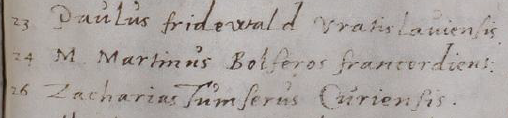 23 Paulus fridewald Vratislauiensis
24 M. Martinus Bolferos francordiens:
26 Zacharias Tumserus Curiensis.